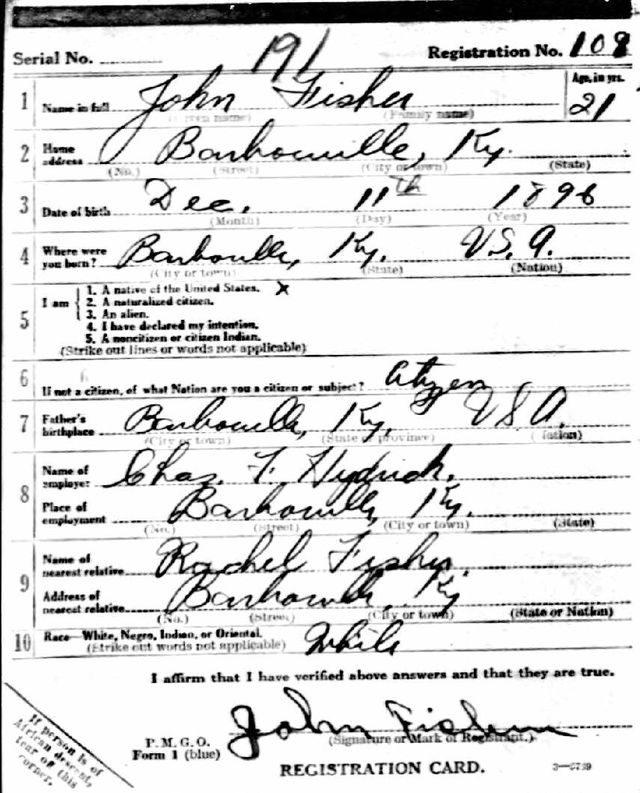 Serial No. 191 Registration No. 108
1 Name in full John Fisher Age, in yrs. 21
(Given name) (Family name)
2 Home address Barbourville, Ky.
(No.) (Street) (City or town) (State)
3 Date of birth Dec. 11th 1896
(Month) (Day) (Year)
4 Where were you born? Barbourville, Ky. U.S.A.
(City or town) (State) (Nation)
5 I am
1. A native of the United States. X
2. A naturalized citizen.
3. An alien.
4. I have declared my intention.
5. A noncitizen or citizen Indian.
(Strike out lines or words not applicable)
6 If not a citizen, of what Nation are you a citizen or subject? Citizen
7 Father's birthplace Barbourville, Ky. U S A.
(City or town) (State or province) (Nation)
8 Name of employer Chas. F. Hydrick.
Place of employment Barbourville, Ky.
(No.) (Street) (City or town) (State)
9 Name of nearest relative Rachel Fisher.
Address of nearest relative Barbourville, Ky
(No.) (Street) (City or town) (State or Nation)
10 Race—White, Negro, Indian, or Oriental. White
(Strike out words not applicable)
I affirm that I have verified above answers and that they are true.
John Fisher
(Signature or Mark of Registrant.)
P. M. G. O.
Form 1 (blue)
REGISTRATION CARD.
If person is of
African descent,
tear off this
corner.